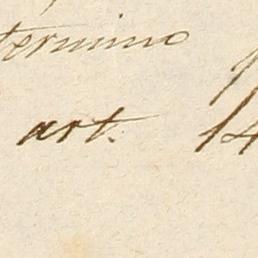 termino
art. 14